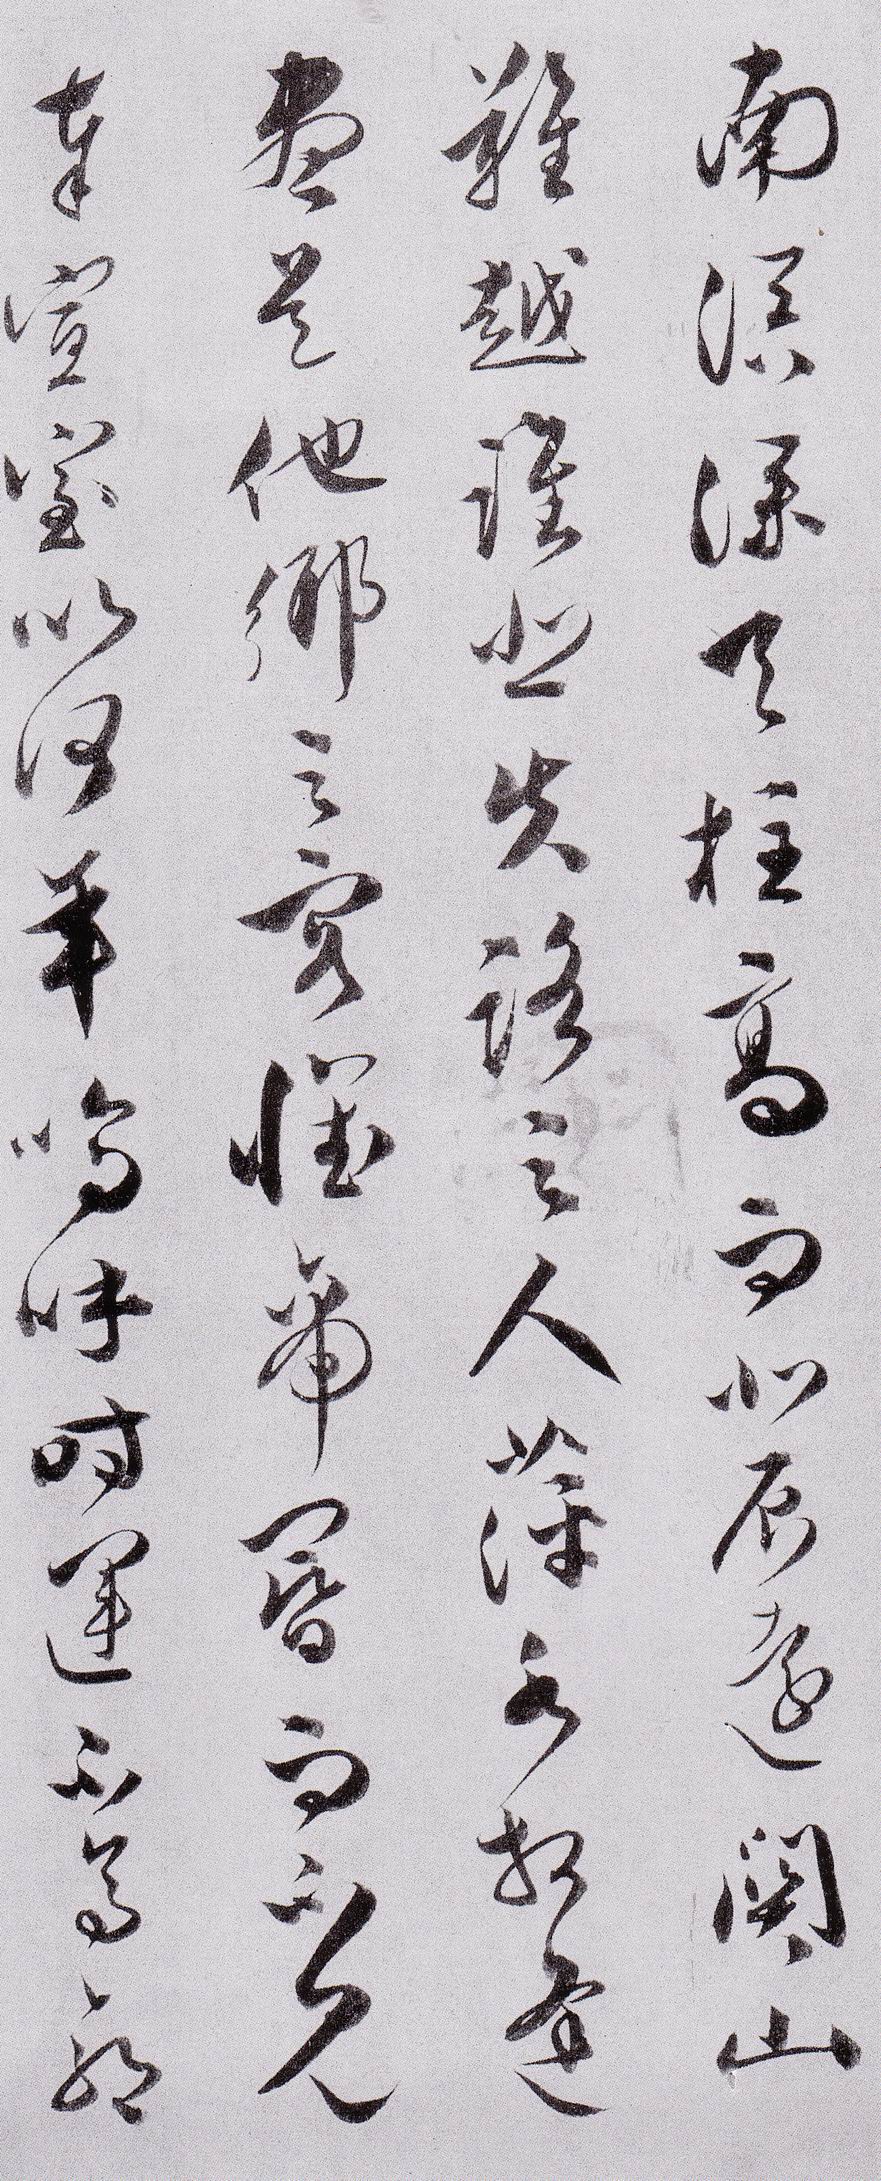 南溟深天柱高而北辰遠關山
難越誰悲失路之人萍水相逢
盡是他鄉之客懷帝閽而不見
奉宣室以何年嗚呼時運不齊命